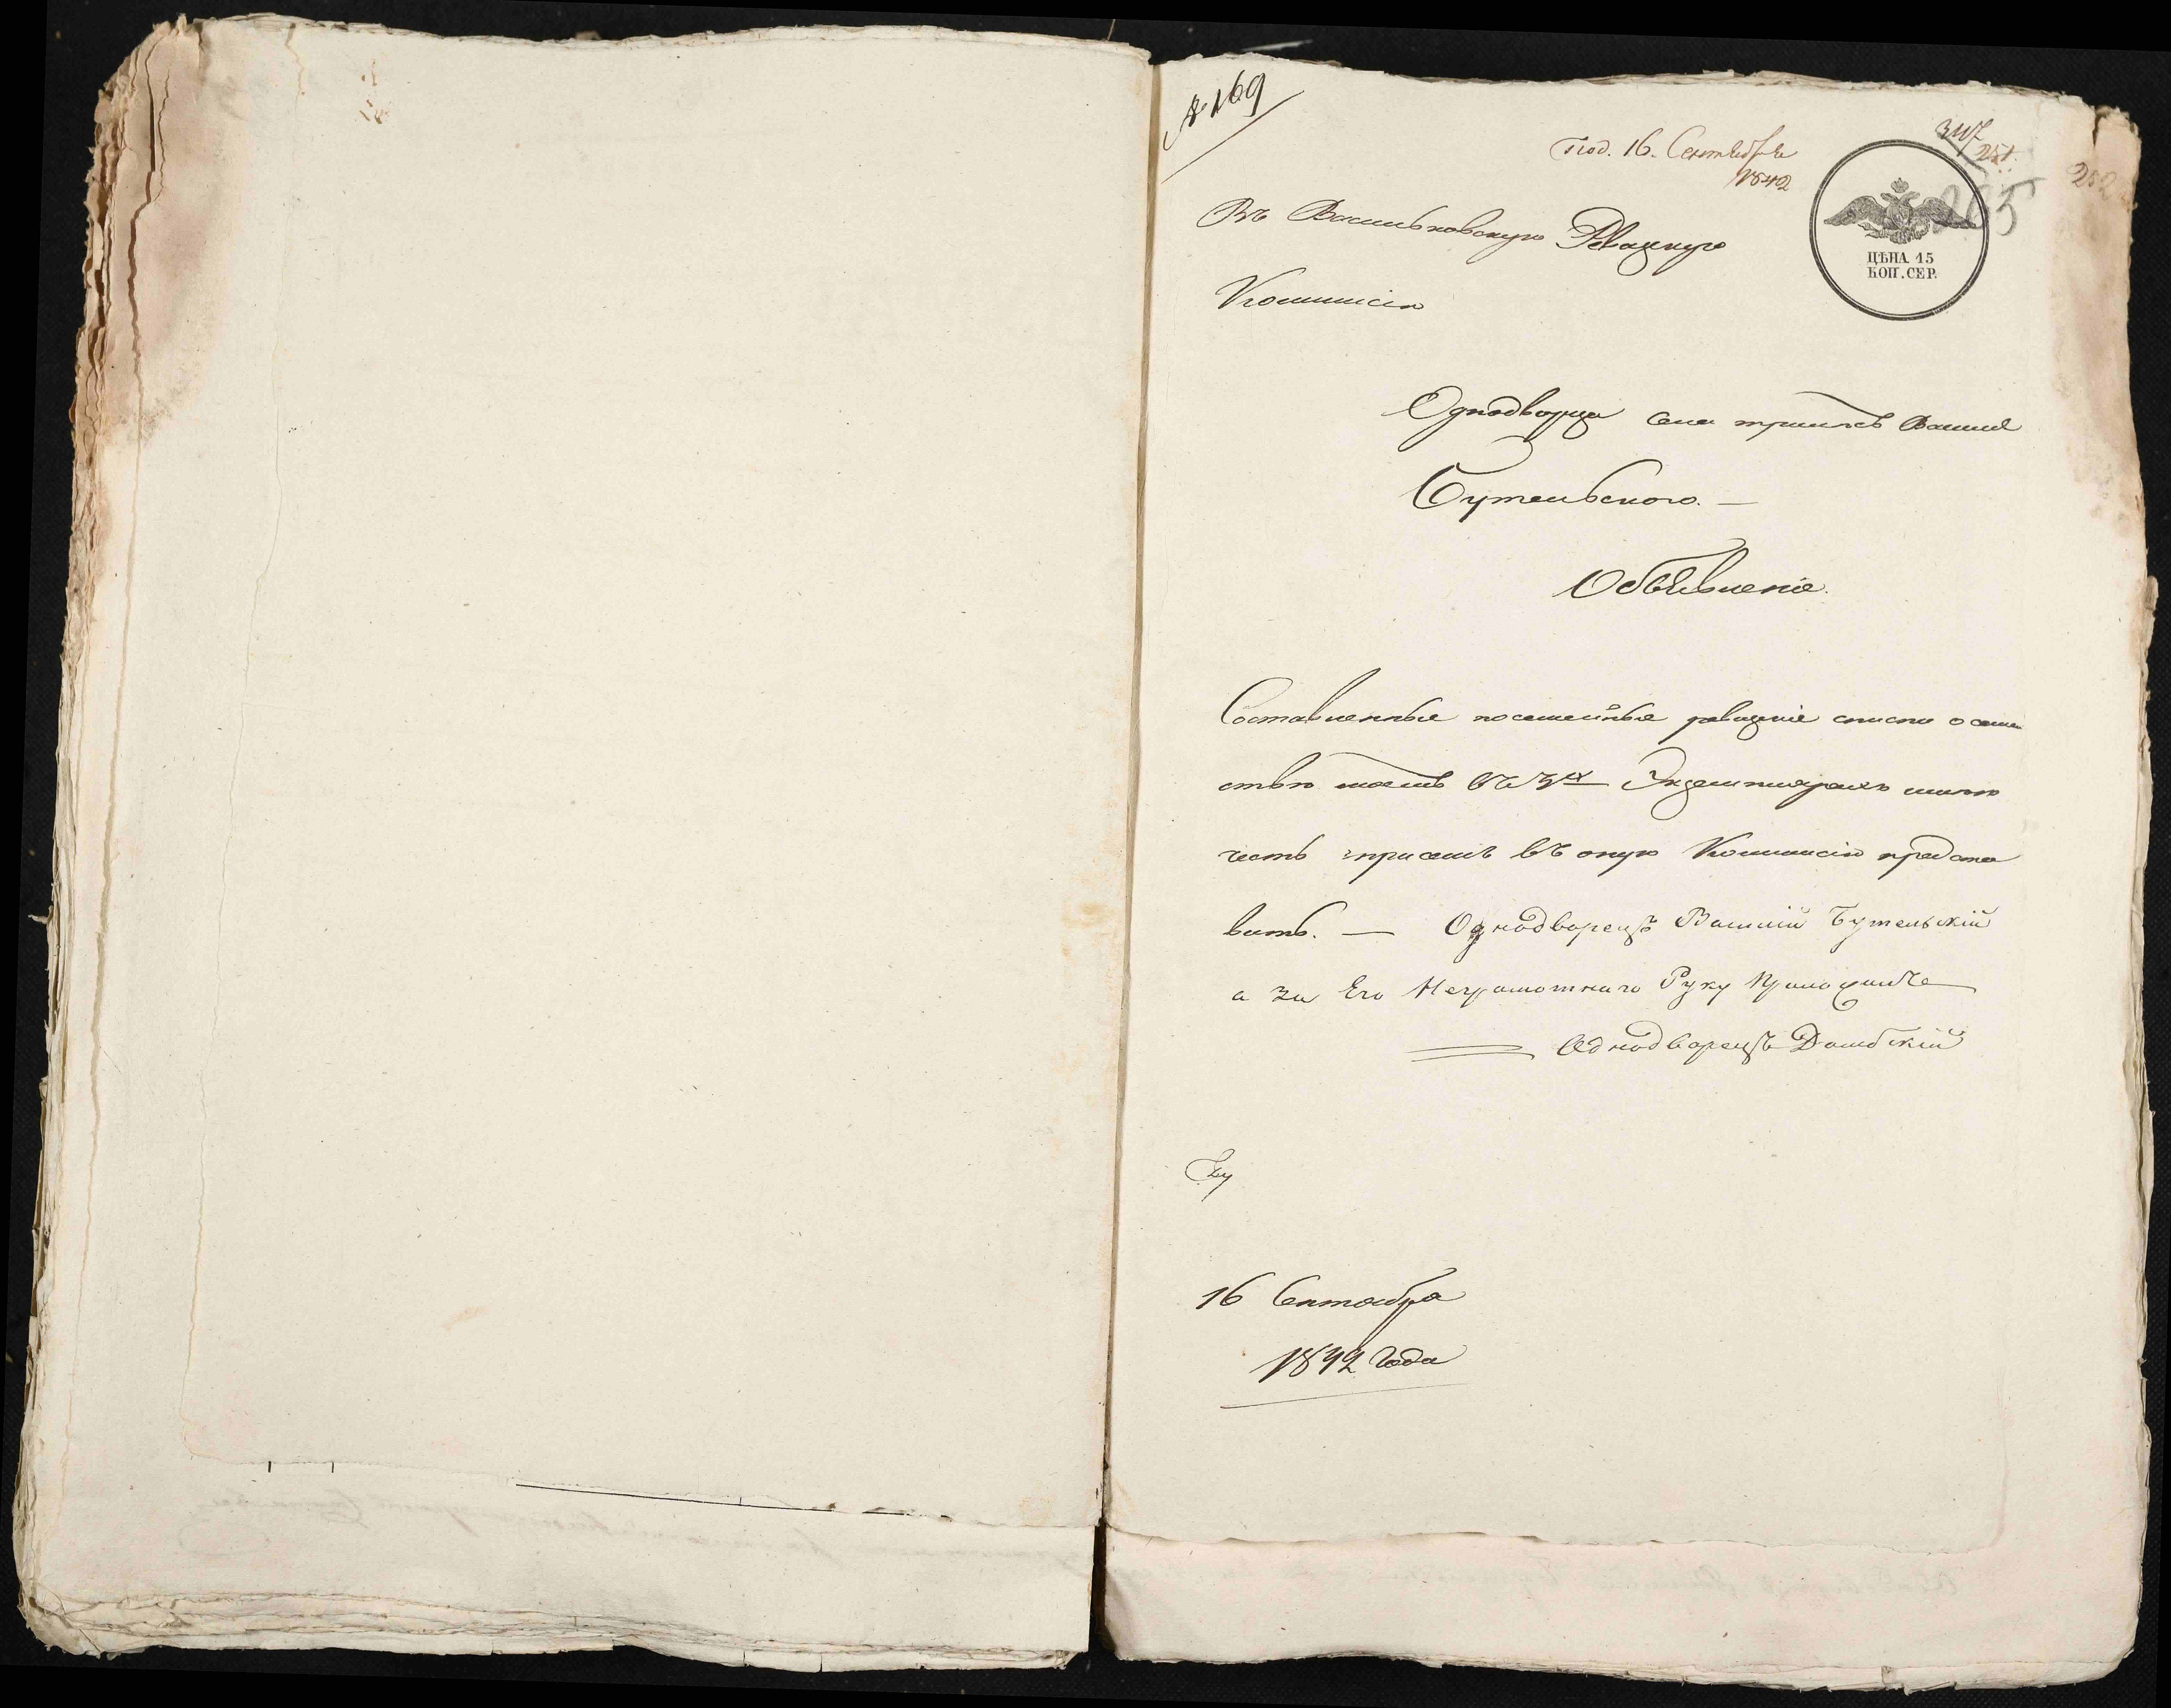 № 169
Под. 16. Сентября
1842
347
251.
252
265
ЦѢНА 15
КОП. СЕР.
Въ Васильковскую Ревизкую
Коммисію
Однодворца села Василія
Бутельского. —
Объявленіе.
Составленные посемейные ревизкіе списки о семе
ствѣ моемъ въ 3хъ Экземплярахъ имѣю
честь при семъ въ оную Коммисію предста
вить. — Однодворецъ Василій Бутельскій
а за Его Неграмотнаго Руку Приложилъ
Однодворецъ Домбскій
16 Сентября
1842 Года